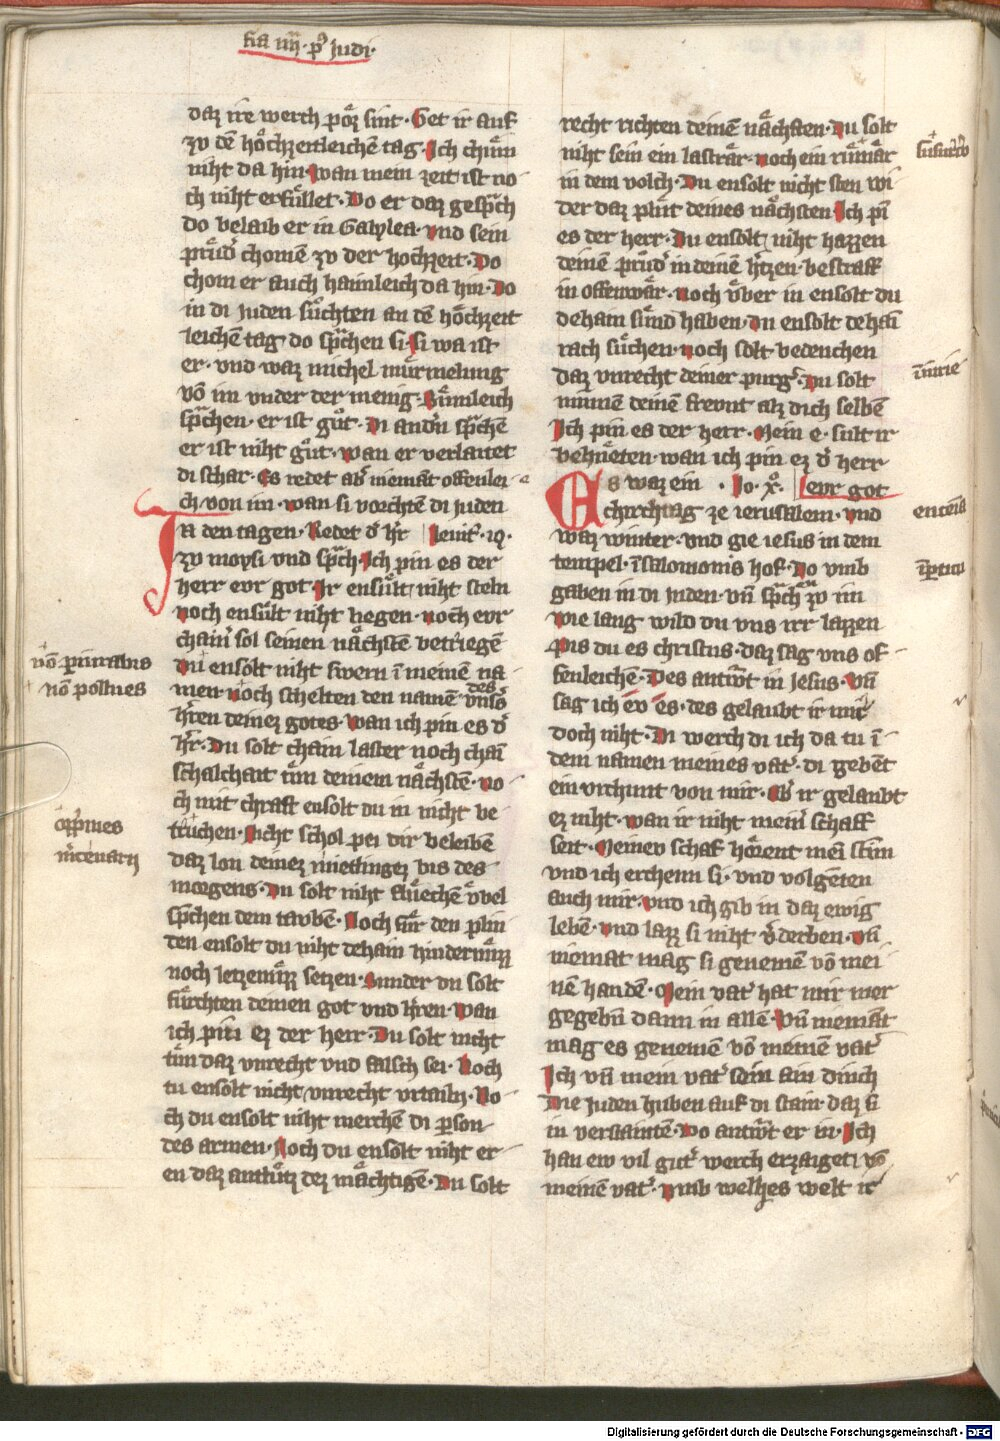 fia iiij. p9 Judi.
daz ire werch poͤz sint. Get ir auf
zv dē hoͤchzeitleichē tag. Ich chum
niht da hin. wan mein zeit ist no
ch niht erfuͤllet. Do er daz gesprͣch
do belaib er in Galylea. vnd sein
pruͤdˀ chomē zv der hochzeit. Do
chom er auch haimleich da hin. Do
in di juden suͤchten an dē hoͤchzeit
leichē tag do sprͣchen si. Si wa ist
er. vnd waz michel muͤrmelung
vō im vnder der menig. Suͤmleich
sprͣchen. er ist guͦt. Di andˀn sprͣchē
er ist niht guͦt. wan er verlaitet
di schar. Es redet abˀ niemāt offenlei
ch von im. wan si vorchtē di juden
In den tagen. Redet dˀ hˀr Leuit. 19.
zv moysi vnd sprͣch. Ich pin es der
herr evr got. Ir ensuͤlt niht steln
noch ensuͤlt niht liegen. noch evr
chainˀ sol seinen naͤchstē betriegē
Du ensolt niht swern ī meinē na
men. noch schelten den namē des
hˀren deinez gotes. Wan ich pin es dˀ
hˀr. Du solt chain laster noch chaī
schalchait tuͦn deinem naͤchstē. no
ch mit chraft ensolt du in niht be
truͤchen. Niht schol pei dir beleibē
daz lon deinez mietlingez bis des
morgens. Du solt niht fluͤechē vͤbel
sprͣchen dem taubē. Noch fuͤr den plin
ten ensolt du niht dehain hindernuͤzz
noch letzenuͤzz setzen. Sunder du solt
fuͤrchten deinen got vnd hˀren. Wan
ich pin ez der herr. Du solt nicht
tuͦn daz vnrecht vnd falsch sei. Noch
tu ensolt nicht vnrecht vrtailn. No
ch du ensolt niht merchen di pson
des armen. Noch du ensolt niht er
en daz antluͤtz dez maͤchtigē. Du solt
nō piurabis
nō pollues
opprimes
mˀcenarii
recht richten deinē naͤchsten. Du solt
niht sein ein lastraͤr. noch ein ruͤnaͤr
in dem volch. Du ensolt nicht sten wi
der daz pluͦt deines naͤchsten. Ich pī
es der herr. Du ensolt niht hazzen
deinē pruͦdˀ in deinē hˀtzen. bestraff
in offenwaͤr. noch vͤber in ensolt du
dehain suͤnd haben. du ensolt dehaī
rach suͤchen. noch solt bedenchen
daz vnrecht deiner purgˀ. Du solt
minnē deinē frevnt alz dich selbē
Ich pin es der herr. Mein e. sult ir
behuͤeten. wan ich pin ez dˀ herr
Es waz ein . Jo. x°. levr got
chirchtag ze ierusalem. vnd
waz winter. vnd gie iesus in dem
tempel. ī salomonis hof. Do vmb
gaben in di juden. vn̄ sprͣchē zv im
wie lang wild du vns irr lazzen
Pis du es christus. daz sag vns of
fenleichē. Des antwˀt in Jesus. Vn̄
sag ich ev es. des gelaubt ir mirˀ
doch niht. Di werch di ich da tu ī
dem namen meines vatˀ. di gebēt
ein vrchunt von mir. Abˀ ir gelaubt
ez niht. wan ir niht meinˀ schaff
seit. Meinev schaf hoͤrent mei stim
vnd ich erchenn si. vnd volgēten
auch mir. vnd ich gib in daz ewig
lebē. vnd lazz si niht vˀderben. vn̄
niemat mag si genemē vō mei
nē handē. Mein vatˀ hat mir mer
gegebn dann in allē. Vn̄ niemāt
mag es genemē vō meinē vatˀ
Ich vn̄ mein vatˀ sein ain dinch
Die juden huben auf di stain. daz si
in verstaintē. Do antwˀt er in. Ich
han ew vil gutˀ werch erzaiget. vō
meinē vatˀ. vmb welhes welt ir
encenia
Digitalisierung gefördert durch die Deutsche Forschungsgemeinschaft - DFG